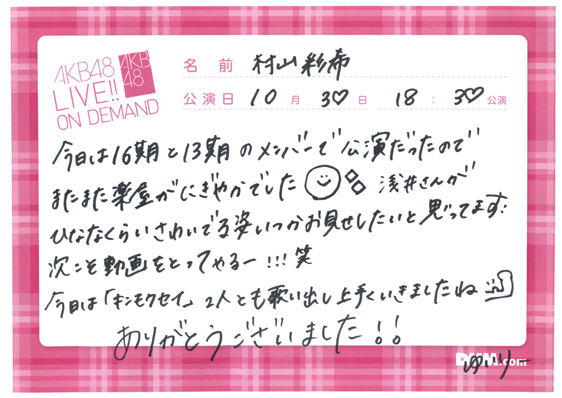 AKB48
LIVE!!
ON DEMAND
AKB
48
名前 村山彩希
公演日 10月 30日 18:30公演
今日は16期と13期のメンバーで公演だったので
またまた楽屋がにぎやかでした 浅井さんが
ひななくらいさわいでる姿いつかお見せしたいと思ってます
次こそ動画をとってやるー!!!笑
今日は「キンモクセイ」2人とも歌い出し上手くいきましたね
ありがとうございました!!
DMM.com
ゆいりー